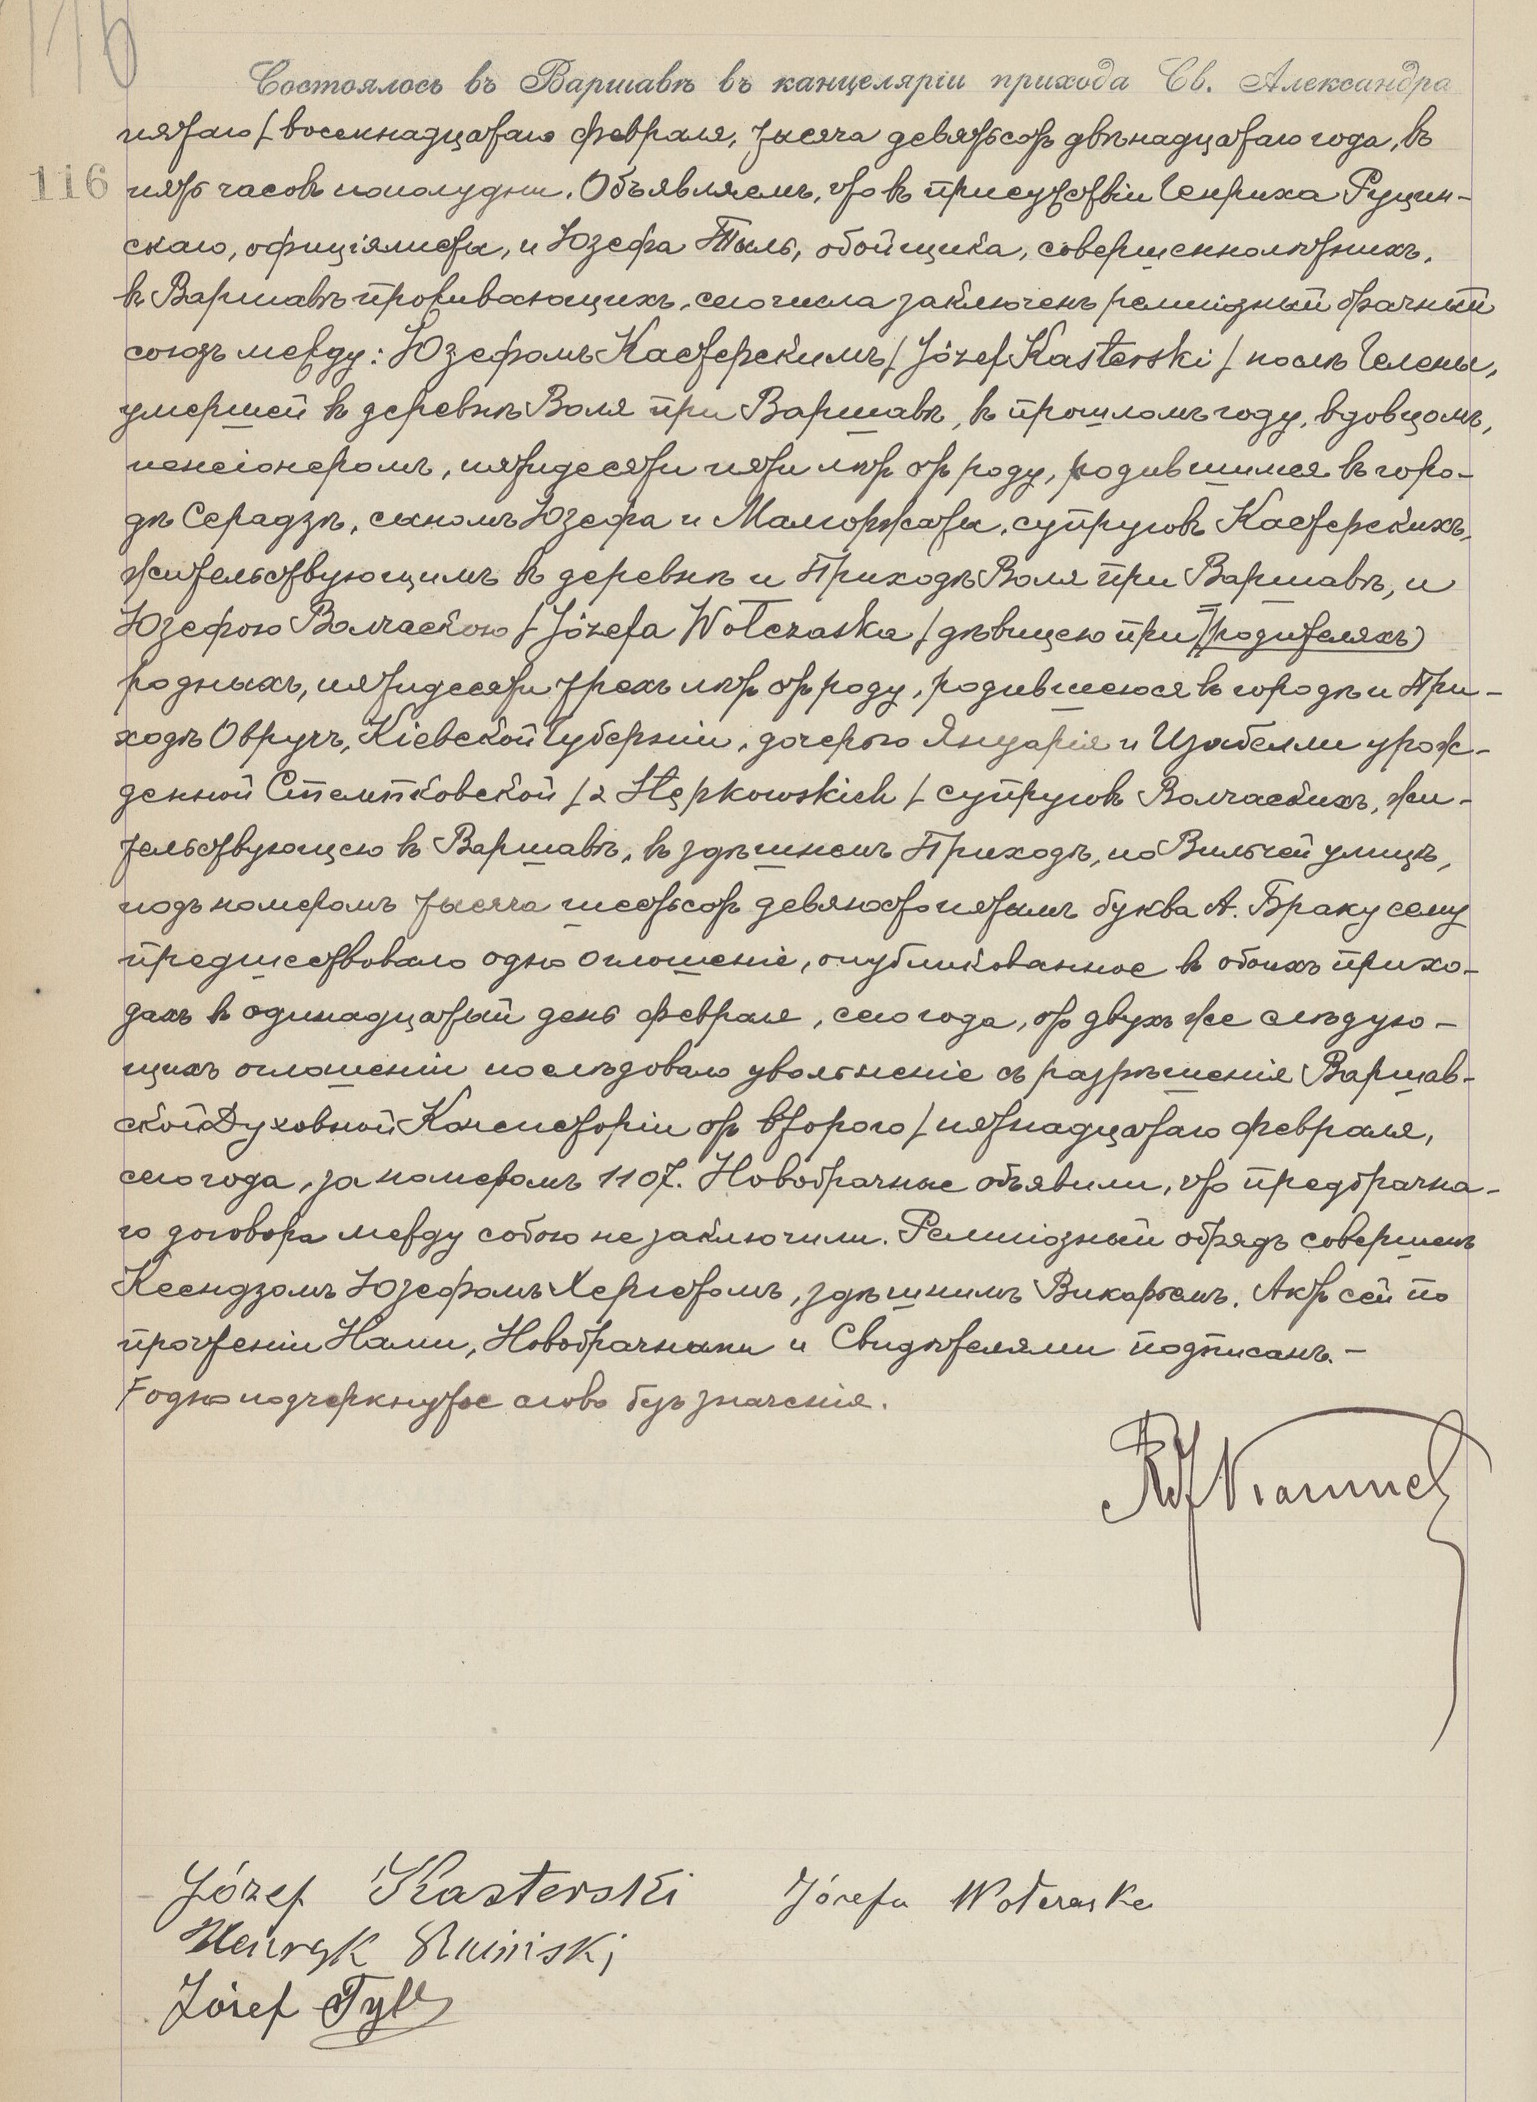 116
Состоялось въ Варшавѣ въ канцеляріи прихода Св. Александра
пятаго / восемнадцатаго февраля, тысяча девятьсотъ двѣнадцатаго года, въ
116
пять часовъ пополудни. Объявляемъ, что въ присутствіи Генриха Руцин-
скаго, официялисты, и Юзефа Тыль, обойщика, совершеннолѣтнихъ,
въ Варшавѣ проживающихъ, сего числа заключенъ религіозный брачный
союзъ между: Юзефомъ Кастерскимъ / Józef Kasterski / послѣ Гелены,
умершей въ деревнѣ Воля при Варшавѣ, въ прошломъ году, вдовцомъ,
пенсіонеромъ, пятидесяти пяти лѣтъ отъ роду, родившимся въ горо-
дѣ Серадзѣ, сыномъ Юзефа и Малгоржаты, супруговъ Кастерскихъ,
жительствующимъ въ деревнѣ и Приходѣ Воля при Варшавѣ, и
Юзефою Волчаскою / Józefa Wołczaska / дѣвицею при родителяхъ
родныхъ, пятидесяти трехъ лѣтъ отъ роду, родившеюся въ городѣ и При-
ходѣ Овручъ, Кіевской Губерніи, дочерью Януарія и Изабелли урож-
денной Стемпковской / z Stępkowskich / супруговъ Волчаскихъ, жи-
тельствующею въ Варшавѣ, въ здѣшнемъ Приходѣ, по Вильчей улицѣ,
подъ номеромъ тысяча шестьсотъ девяносто пятымъ буква А. Браку сему
предшествовало одно оглошеніе, опубликованное въ обоихъ прихо-
дахъ въ одинадцатый день февраля, сего года, отъ двухъ же слѣдую-
щихъ оглошеніи послѣдовало увольненіе съ разрѣшенія Варшав-
ской Духовной Консисторіи отъ второго / пятнадцатаго февраля,
сего года, за номеромъ 1107. Новобрачные объявили, что предбрачна-
го договора между собою не заключили. Религіозный обрядъ совершенъ
Ксендзомъ Юзефомъ Хергетомъ, здѣшнимъ Викарьемъ. Актъ сей по
прочтеніи Нами, Новобрачными и Свидѣтелями подписанъ.-
одно подчеркнутое слово безъ значенія.
Józef Kasterski Józefa Wołczaska
Henryk Ruciński
Józef Tyll